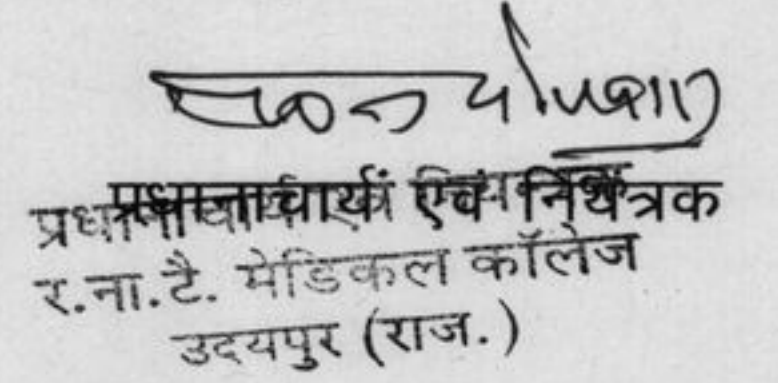 प्रधानाचार्य एवं नियंत्रक
प्रधानाचार्य एवं नियंत्रक
र.ना.टै. मेडिकल कॉलेज
उदयपुर (राज.)